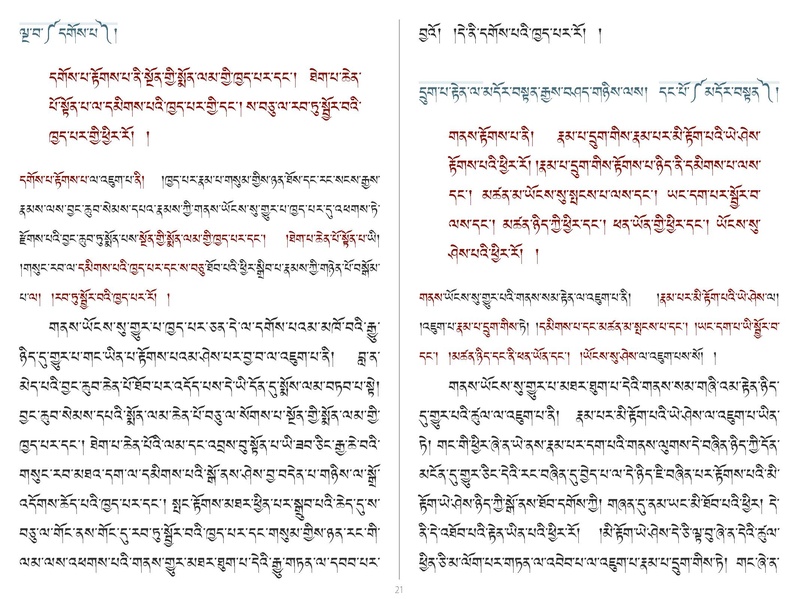 ལྔ་བ་༼དགོས་པ་༽།
དགོས་པ་རྟོགས་པ་ནི་སྔོན་གྱི་སྨོན་ལམ་གྱི་ཁྱད་པར་དང་། ཐེག་པ་ཆེན་
པོ་སྟོན་པ་ལ་དམིགས་པའི་ཁྱད་པར་གྱི་དང་། ས་བཅུ་ལ་རབ་ཏུ་སྦྱོར་བའི་
ཁྱད་པར་གྱི་ཕྱིར་རོ། །
དགོས་པ་རྟོགས་པ་ལ་འཇུག་པ་ནི། །ཁྱད་པར་རྣམ་པ་གསུམ་གྱིས་ཉན་ཐོས་དང་རང་སངས་རྒྱས་
རྣམས་ལས་བྱང་ཆུབ་སེམས་དཔའ་རྣམས་ཀྱི་གནས་ཡོངས་སུ་གྱུར་པ་ཁྱད་པར་དུ་འཕགས་ཏེ་
རྫོགས་པའི་བྱང་ཆུབ་ཏུ་སྨོན་པས་སྔོན་གྱི་སྨོན་ལམ་གྱི་ཁྱད་པར་དང་། །ཐེག་པ་ཆེན་པོ་སྟོན་པ་ཡི།
།གསུང་རབ་ལ་དམིགས་པའི་ཁྱད་པར་དང་ས་བཅུ་ཐོབ་པའི་ཕྱིར་སྒྲིབ་པ་རྣམས་ཀྱི་གཉེན་པོ་བསྒོམ་
པ་ལ། །རབ་ཏུ་སྦྱོར་བའི་ཁྱད་པར་རོ། །
གནས་ཡོངས་སུ་གྱུར་པ་ཁྱད་པར་ཅན་དེ་ལ་དགོས་པའམ་མཁོ་བའི་རྒྱུ་
ཉིད་དུ་གྱུར་པ་གང་ཡིན་པ་རྟོགས་པའམ་ཤེས་པར་བྱ་བ་ལ་འཇུག་པ་ནི། བླ་ན་
མེད་པའི་བྱང་ཆུབ་ཆེན་པོ་ཐོབ་པར་འདོད་པས་དེ་ཡི་དོན་དུ་སྨོས་ལམ་བཏབ་པ་སྟེ།
བྱང་ཆུབ་སེམས་དཔའི་སྨོན་ལམ་ཆེན་པོ་བཅུ་ལ་སོགས་པ་སྔོན་གྱི་སྨོན་ལམ་གྱི་
ཁྱད་པར་དང་། ཐེག་པ་ཆེན་པོའི་ལམ་དང་འབྲས་བུ་སྟོན་པ་ཡི་ཟབ་ཅིང་རྒྱ་ཆེ་བའི་
གསུང་རབ་མཐའ་དག་ལ་དམིགས་པའི་སྒོ་ནས་ཤེས་བྱ་བདེན་པ་གཉིས་ལ་སྒྲོ་
འདོགས་ཆོད་པའི་ཁྱད་པར་དང་། སྤང་རྟོགས་མཐར་ཕྱིན་པར་སྒྲུབ་པའི་ཆེད་དུ་ས་
བཅུ་ལ་གོང་ནས་གོང་དུ་རབ་ཏུ་སྦྱོར་བའི་ཁྱད་པར་དང་གསུམ་གྱིས་ཉན་རང་གི་
ལམ་ལས་འཕགས་པའི་གནས་གྱུར་མཐར་ཐུག་པ་དེའི་རྒྱུ་གཏན་ལ་དབབ་པར་
བྱའོ། །དེ་ནི་དགོས་པའི་ཁྱད་པར་རོ། །
དྲུག་པ་རྟེན་ལ་མདོར་བསྟན་རྒྱས་བཤད་གཉིས་ལས། དང་པོ་༼མདོར་བསྟན་༽།
གནས་རྟོགས་པ་ནི། རྣམ་པ་དྲུག་གིས་རྣམ་པར་མི་རྟོག་པའི་ཡེ་ཤེས་
རྟོགས་པའི་ཕྱིར་རོ། །རྣམ་པ་དྲུག་གིས་རྟོགས་པ་ཉིད་ནི་དམིགས་པ་ལས་
དང་། མཚན་མ་ཡོངས་སུ་སྤངས་པ་ལས་དང་། ཡང་དག་པར་སྦྱོར་བ་
ལས་དང་། མཚན་ཉིད་ཀྱི་ཕྱིར་དང་། ཕན་ཡོན་གྱི་ཕྱིར་དང་། ཡོངས་སུ་
ཤེས་པའི་ཕྱིར་རོ། །
གནས་ཡོངས་སུ་གྱུར་པའི་གནས་སམ་རྟེན་ལ་འཇུག་པ་ནི། །རྣམ་པར་མི་རྟོག་པའི་ཡེ་ཤེས་ལ།
།འཇུག་པ་རྣམ་པ་དྲུག་གིས་ཏེ། །དམིགས་པ་དང་མཚན་མ་སྤངས་པ་དང་། །ཡང་དག་པ་ཡི་སྦྱོར་བ་
དང་། །མཚན་ཉིད་དང་ནི་ཕན་ཡོན་དང་། །ཡོངས་སུ་ཤེས་ལ་འཇུག་པས་སོ། །
གནས་ཡོངས་སུ་གྱུར་པ་མཐར་ཐུག་པ་དེའི་གནས་སམ་གཞི་འམ་རྟེན་ཉིད་
དུ་གྱུར་པའི་ཚུལ་ལ་འཇུག་པ་ནི། རྣམ་པར་མི་རྟོག་པའི་ཡེ་ཤེས་ལ་འཇུག་པ་ཡིན་
ཏེ། གང་གི་ཕྱིར་ཞེ་ན་ཡེ་ནས་རྣམ་པར་དག་པའི་གནས་ལུགས་དེ་བཞིན་ཉིད་ཀྱི་དོན་
མངོན་དུ་གྱུར་ཅིང་དེའི་རང་བཞིན་དུ་བྱེད་པ་ལ་དེ་ཉིད་ཇི་བཞིན་པར་རྟོགས་པའི་མི་
རྟོག་ཡེ་ཤེས་ཉིད་ཀྱི་སྒོ་ནས་ཐོབ་དགོས་ཀྱི། གཞན་དུ་ནམ་ཡང་མི་ཐོབ་པའི་ཕྱིར། དེ་
ནི་དེ་འཐོབ་པའི་རྟེན་ཡིན་པའི་ཕྱིར་རོ། །མི་རྟོག་ཡེ་ཤེས་དེ་ཅི་ལྟ་བུ་ཞེ་ན་དེའི་ཚུལ་
ཕྱིན་ཅི་མ་ལོག་པར་གཏན་ལ་འབེབ་པ་ལ་འཇུག་པ་རྣམ་པ་དྲུག་གིས་ཏེ། གང་ཞེ་ན་
21